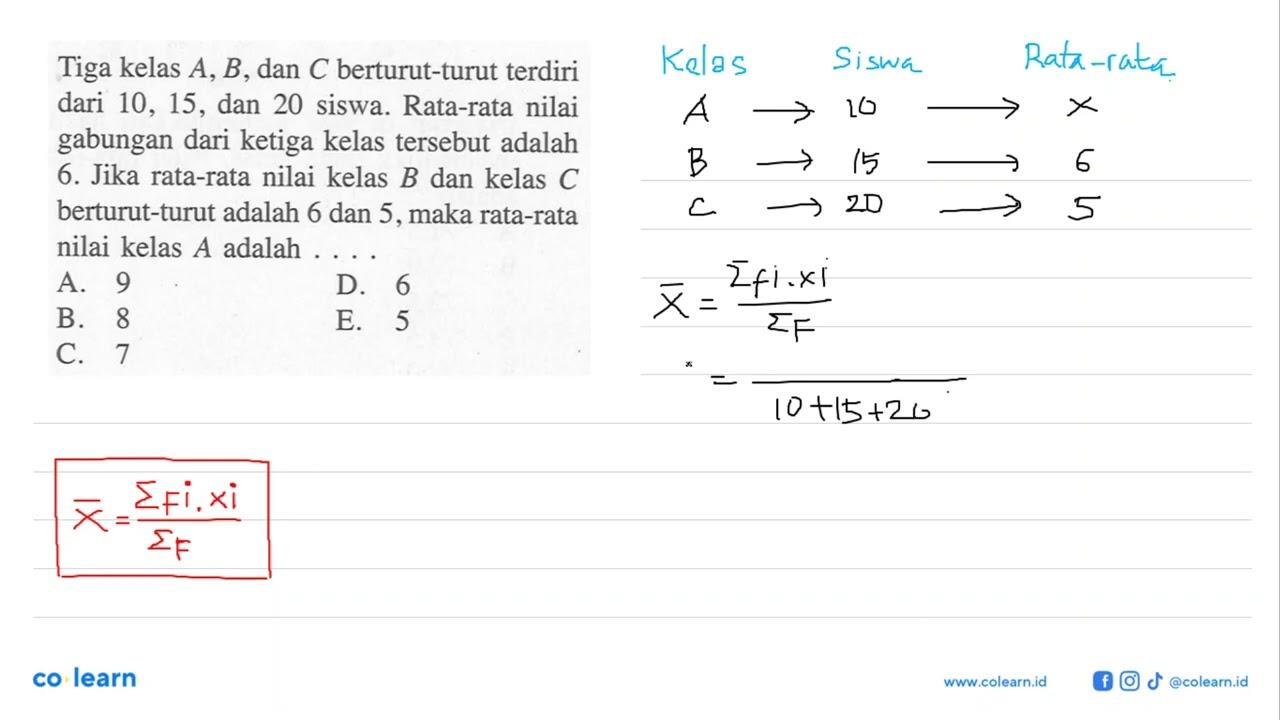 Tiga kelas A, B, dan C berturut-turut terdiri
dari 10, 15, dan 20 siswa. Rata-rata nilai
gabungan dari ketiga kelas tersebut adalah
6. Jika rata-rata nilai kelas B dan kelas C
berturut-turut adalah 6 dan 5, maka rata-rata
nilai kelas A adalah . . . .
A. 9 D. 6
B. 8 E. 5
C. 7
Kelas Siswa Rata-rata
A → 10 → x
B → 15 → 6
C → 20 → 5
x̄ = Σfi.xi / ΣF
= 10+15+20
x̄ = ΣFi.xi / ΣF
co learn
www.colearn.id
@colearn.id